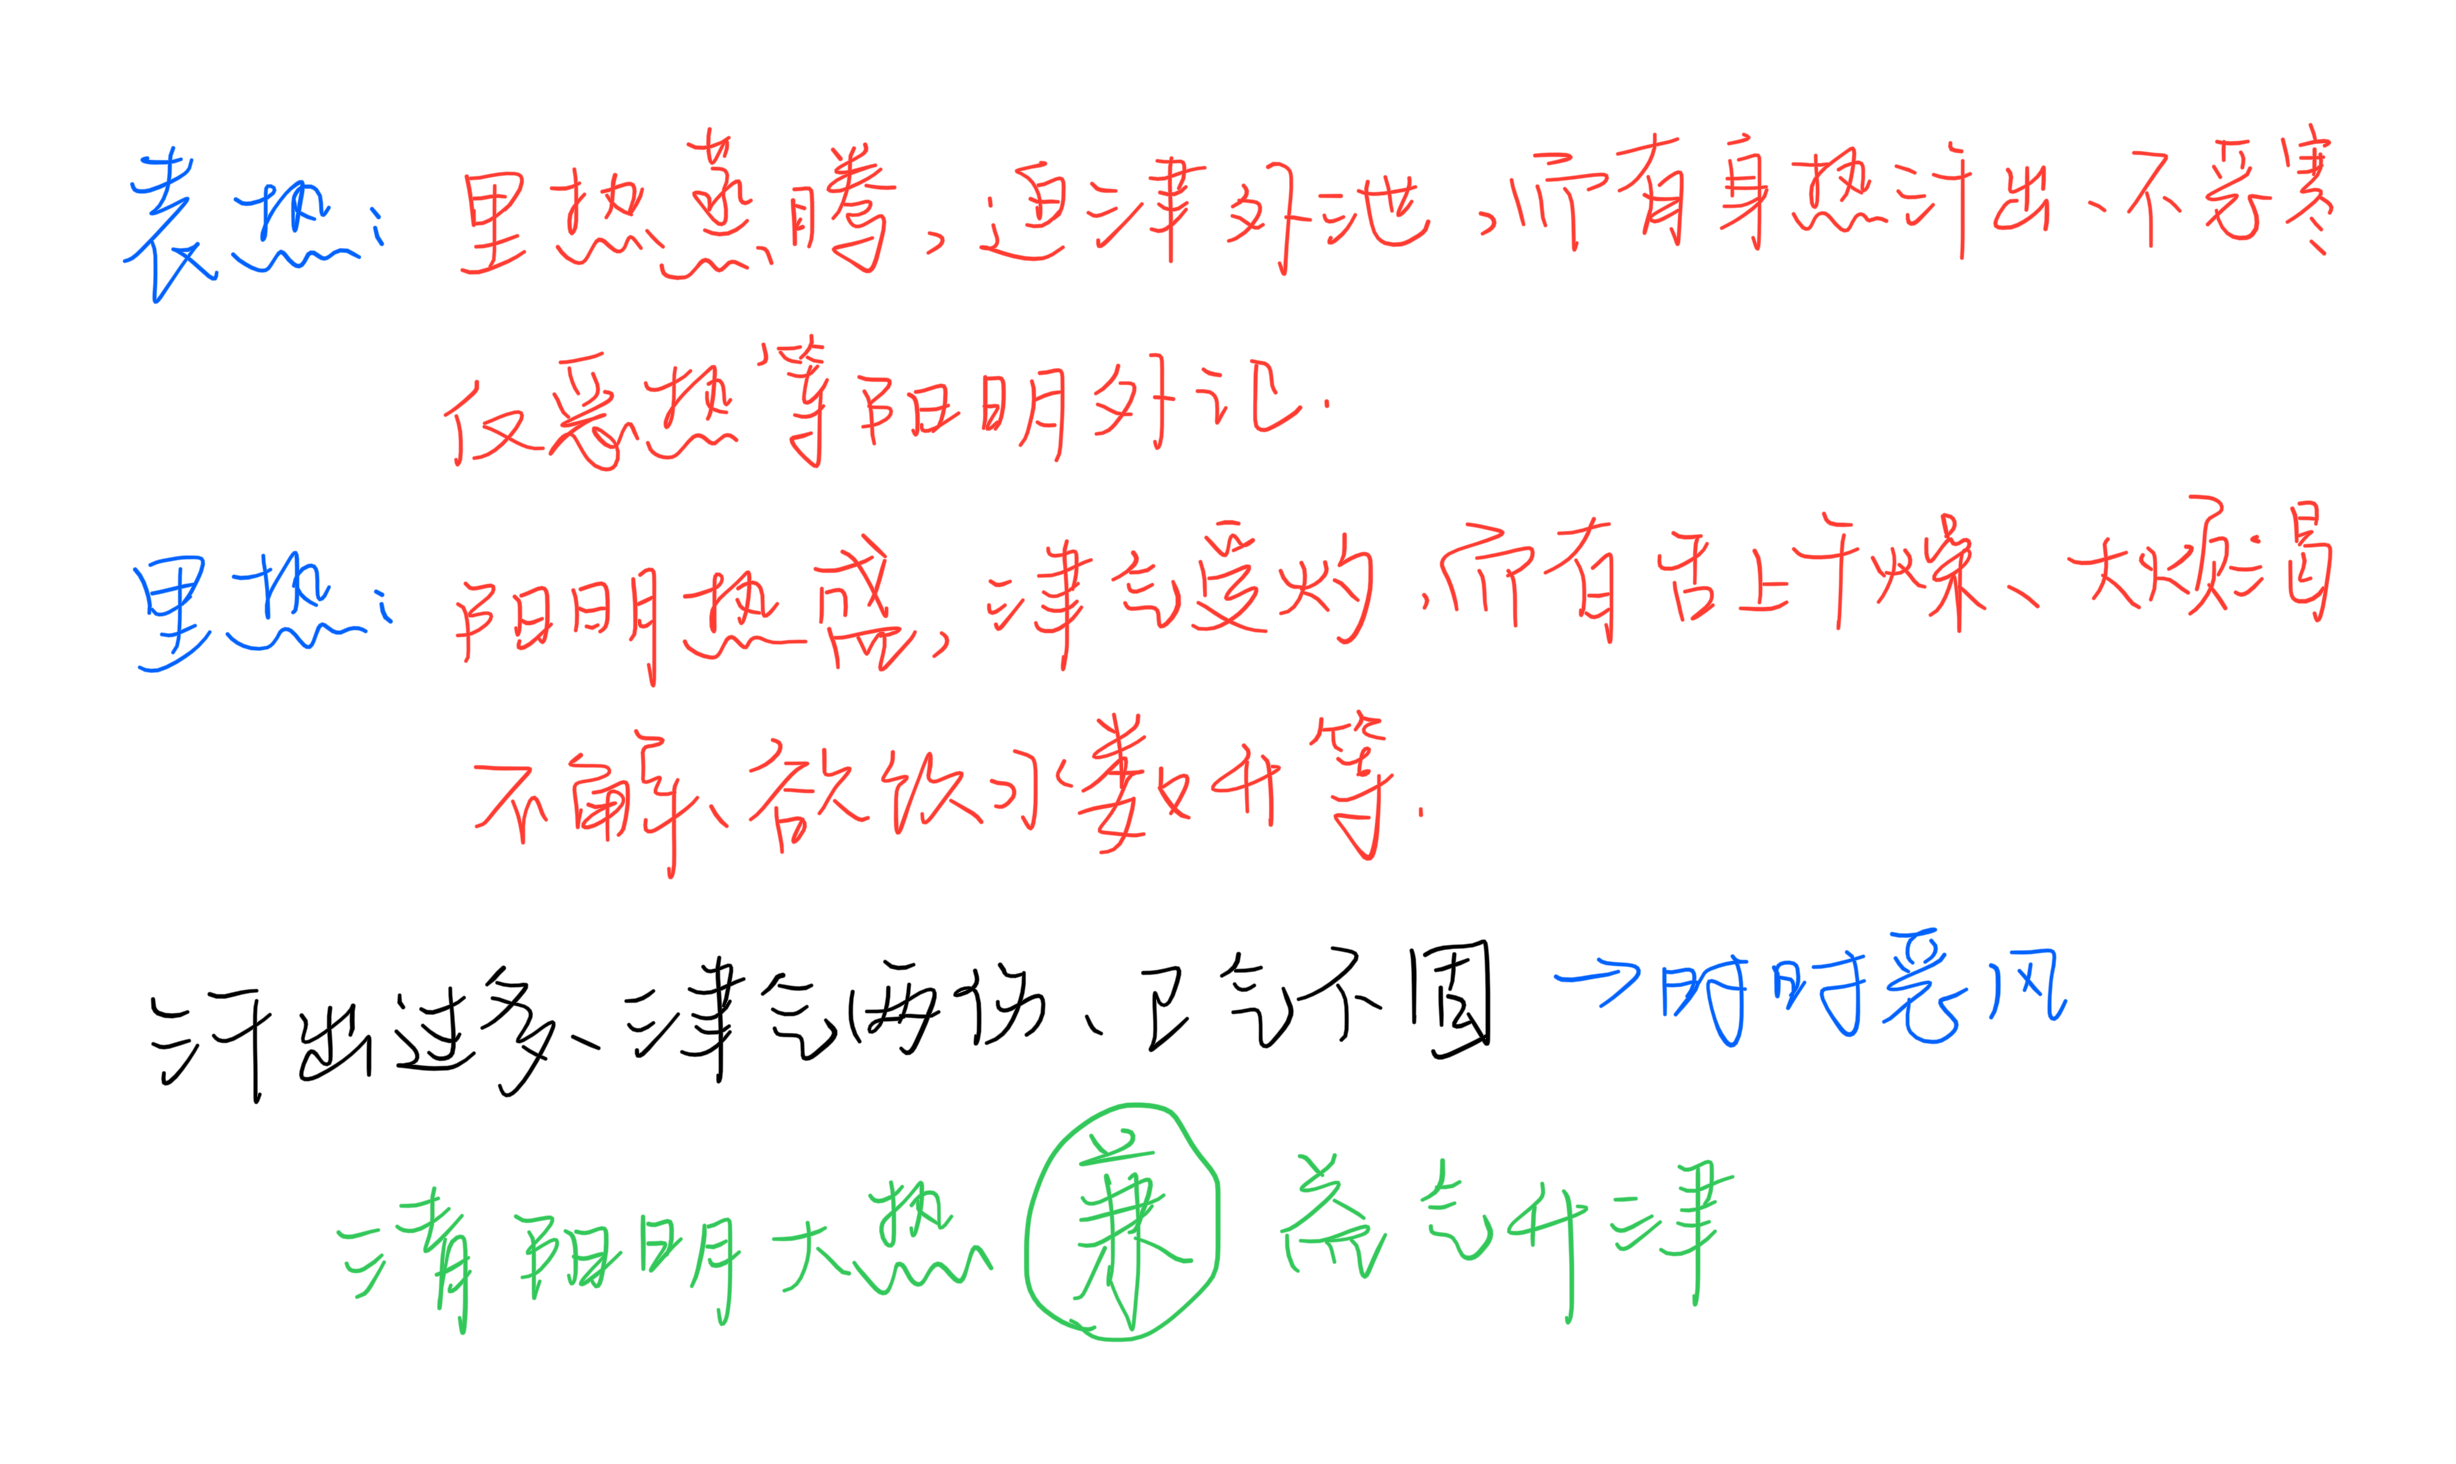 表热：里热蒸腾，迫津外泄，而有身热汗出、不恶寒
仅恶热等阳明外证.
里热：阳明热盛，津气受灼，而有舌上干燥、大烦渴
不解、欲饮水数升等.
汗出过多、津气两伤、卫气不固 →时时恶风
清阳明大热 兼 益气生津